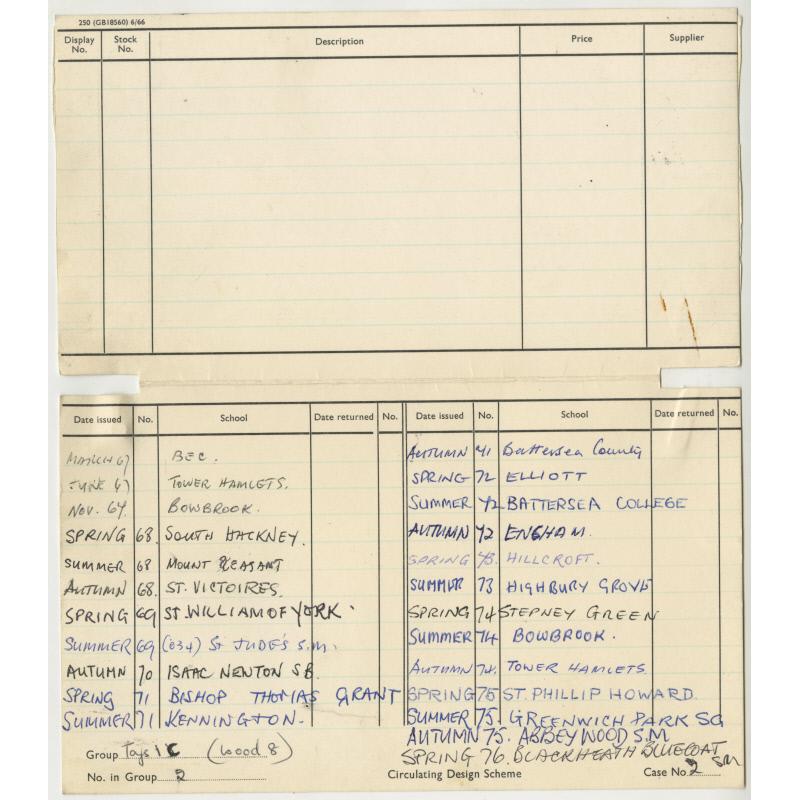 250 (GB18560) 6/66
Display No. Stock No. Description Price Supplier
Date issued No. School Date returned No. Date issued No. School Date returned No.
MARCH 67 BEC.
JUNE 67 TOWER HAMLETS.
NOV. 67. BOWBROOK.
SPRING 68. SOUTH HACKNEY.
SUMMER 68 MOUNT PLEASANT
AUTUMN 68. ST. VICTOIRES.
SPRING 69 ST. WILLIAM OF YORK.
SUMMER 69 (034) ST JUDE'S S.M.
AUTUMN 70 ISAAC NEWTON S B.
SPRING 71 BISHOP THOMAS GRANT
SUMMER 71 KENNINGTON.
AUTUMN 71 Battersea County
SPRING 72 ELLIOTT
SUMMER 72 BATTERSEA COLLEGE
AUTUMN 72 ENSHAM.
SPRING 73. HILLCROFT.
SUMMER 73 HIGHBURY GROVE
SPRING 74 STEPNEY GREEN
SUMMER 74 BOWBROOK.
AUTUMN 74. TOWER HAMLETS.
SPRING 75 ST. PHILLIP HOWARD.
SUMMER 75. GREENWICH PARK SG
AUTUMN 75. ABBEY WOOD S.M
SPRING 76. BLACKHEATH BLUECOAT SM
Group Toys 1C (Wood 8)
No. in Group 2
Circulating Design Scheme
Case No. 2